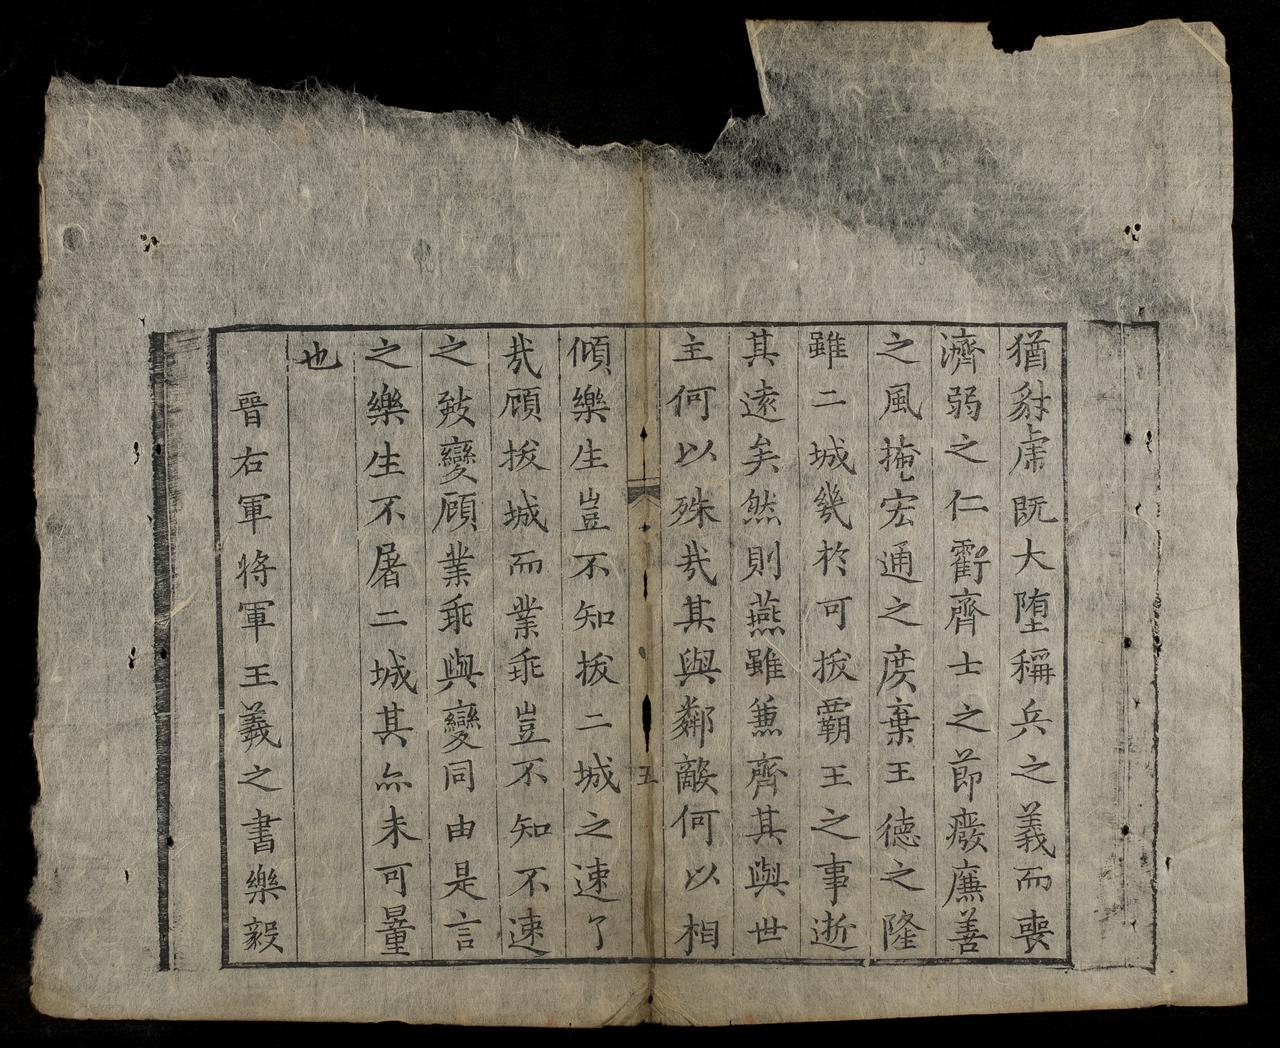 猶豺虎既大墮稱兵之義而喪
濟弱之仁虧齊士之節癈廉善
之風掩宏通之度棄王德之隆
雖二城幾於可拔霸王之事逝
其遠矣然則燕雖兼齊其與世
主何以殊哉其與鄰敵何以相
五
傾樂生豈不知拔二城之速了
哉顧拔城而業乖豈不知不速
之致變顧業乖與變同由是言
之樂生不屠二城其亦未可量
也
晉右軍將軍王羲之書樂毅